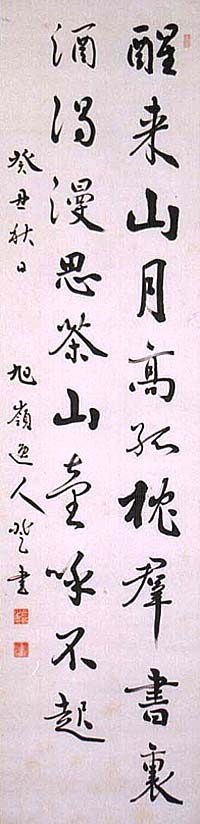 醒来山月高孤枕羣書裏
酒渇漫思茶山童呼不起
癸丑秋日 旭嶺人書